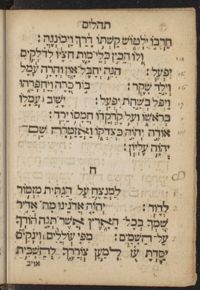 תהלים
חַרְבּוֹ יִלְטוֹשׁ קַשְׁתּוֹ דָרַךְ וַיְכוֹנְנֶהָ׃
וְלוֹ הֵכִין כְּלֵי־מָוֶת חִצָּיו לְדֹלְקִים
יִפְעָל׃ הִנֵּה יְחַבֶּל־אָוֶן וְהָרָה עָמָל
וְיָלַד שָׁקֶר׃ בּוֹר כָּרָה וַיַּחְפְּרֵהוּ
וַיִּפֹּל בְּשַׁחַת יִפְעָל׃ יָשׁוּב עֲמָלוֹ
בְרֹאשׁוֹ וְעַל קָדְקֳדוֹ חֲמָסוֹ יֵרֵד׃
אוֹדֶה יְהוָה כְּצִדְקוֹ וַאֲזַמְּרָה שֵׁם־
יְהוָה עֶלְיוֹן׃
ח
לַמְנַצֵּחַ עַל־הַגִּתִּית מִזְמוֹר
לְדָוִד׃ יְהוָה אֲדֹנֵינוּ מָה־אַדִּיר
שִׁמְךָ בְּכָל־הָאָרֶץ אֲשֶׁר תְּנָה הוֹדְךָ
עַל־הַשָּׁמָיִם׃ מִפִּי עוֹלְלִים וְיֹנְקִים
יִסַּדְתָּ עֹז לְמַעַן צוֹרְרֶיךָ לְהַשְׁבִּית
אויב